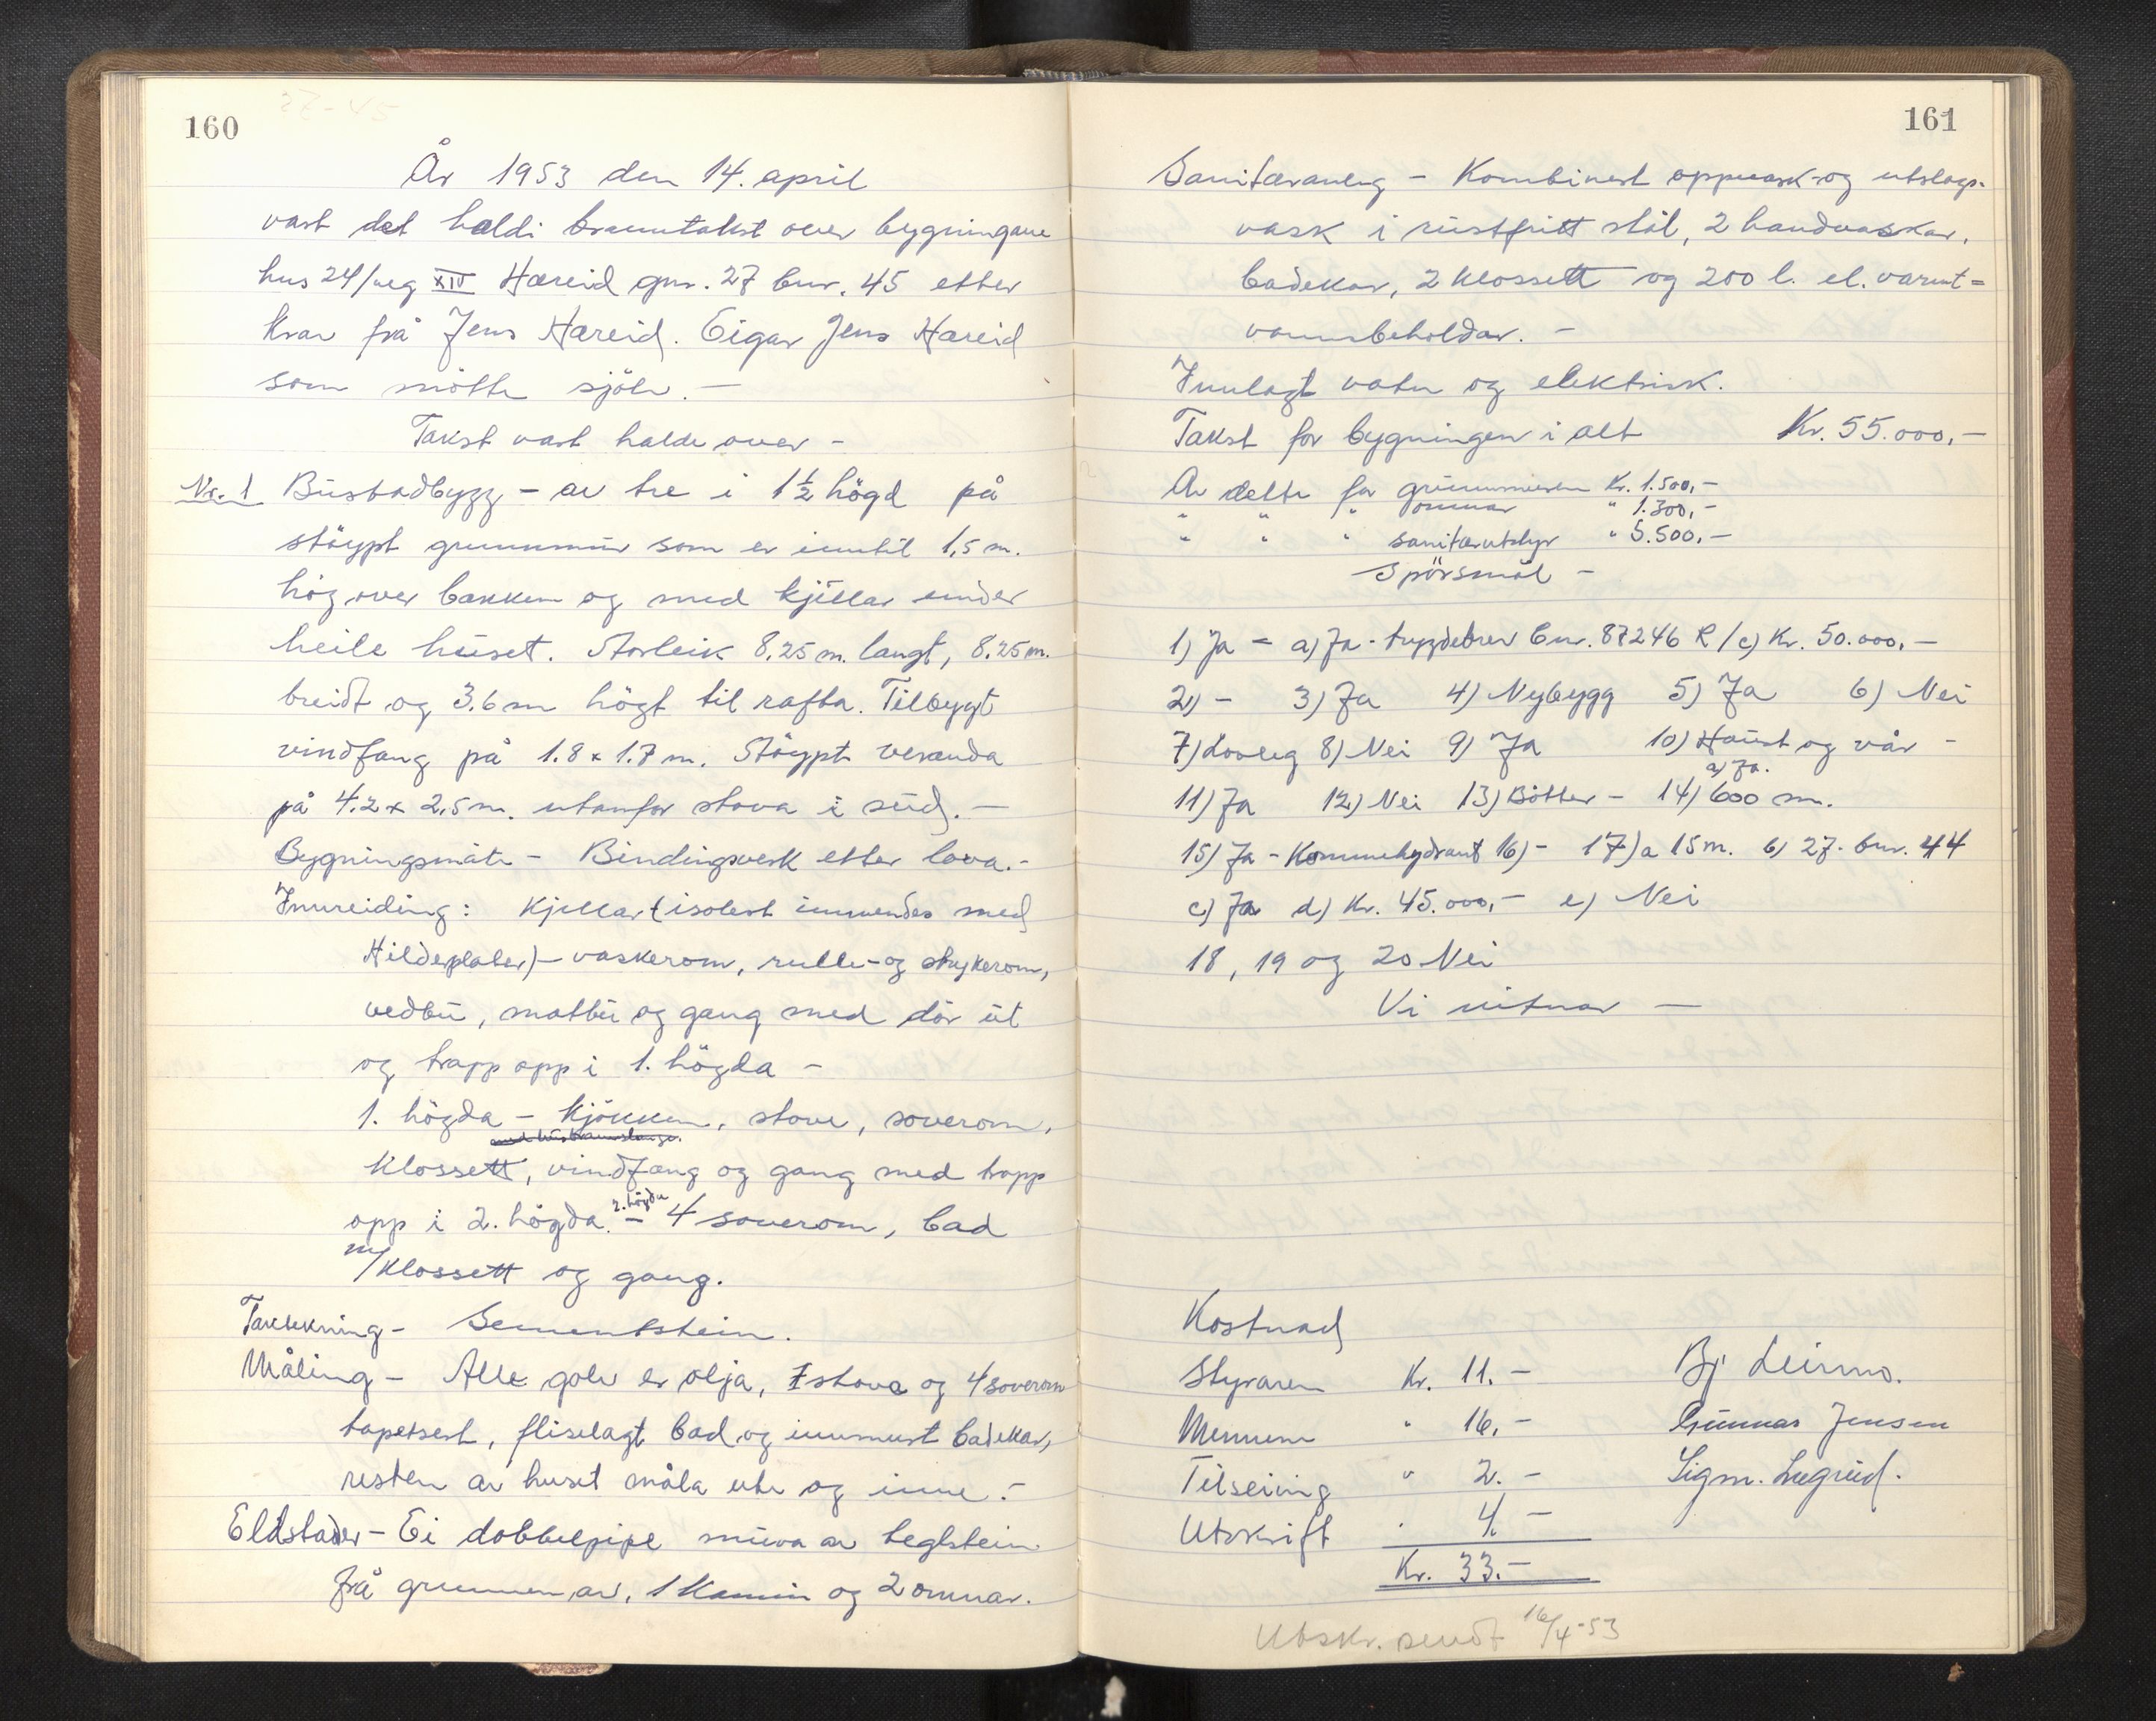 160
27-45
År 1953 den 14. april
vart det haldi branntakst over bygningane
hus 24/veg XIV Hæreid gnr. 27 bnr. 45 etter
krav frå Jens Hæreid. Eigar Jens Hæreid
som møtte sjölv. —
Takst vart halde over –
Nr. 1 Bustadbygg – av tre i 1½ högd på
stöypt grunnmur som er inntil 1,5 m.
hög over bakken og med kjellar under
heile huset. Storleik 8.25 m. langt, 8.25 m.
breidt og 3.6 m högt til rafta. Tilbygt
vindfang på 1.8 x 1.7 m. Stöypt veranda
på 4.2 x 2.5 m. utanfor stova i sud. —
Bygningsmåte – Bindingsverk etter lova. –
Innreiding: Kjellar (isolert innvendes med
Hildeplater) – vaskerom, rulle- og strykerom,
vedbu, matbu og gang med dör ut
og trapp opp i 1. högda –
1. högda – kjökken, stove, soverom,
klossett, vindfang og gang med trapp
opp i 2. högda. 2. högda – 4 soverom, bad
m/klossett og gang.
Taktekning – Sementstein.
Måling – Alle golv er olja, 1 stova og 4 soverom
tapetsert, fliselagt bad og innmurt badekar,
resten av huset måla ute og inne. –
Eldstader – Ei dobbelpipe mura av teglstein
frå grunnen av, 1 Kamin og 2 omnar.
161
Sanitæranleg – Kombinert oppvask- og utslags-
vask i rustfritt stål, 2 handvaskar,
badekar, 2 klossett og 200 l. el. varmt=
vannsbeholdar. –
Innlagt vatn og elektrisk.
Takst for bygningen i alt Kr. 55.000,–
Av dette for grunnmuren Kr. 1.500,–
" " " omnar " 1.300,–
" " " sanitærutstyr " 5.500,–
Spörsmål –
1) Ja – a) Ja - trygdebrev bnr. 87246 R/c) Kr. 50.000,–
2) – 3) Ja 4) Nybygg 5) Ja 6) Nei
7) Lovleg 8) Nei 9) Ja 10) Haust og vår –
11) Ja 12) Nei 13) Bötter – 14) 600 m. a) Ja.
15) Ja – Kommehydrant 16) – 17) a 15 m. b) 27. bnr. 44
c) Ja d) Kr. 45.000,– e) Nei
18, 19 og 20 Nei
Vi vitnar —
Kostnad
Styraren Kr. 11.– Bj Leirmo.
Mennene " 16,– Gunnar Jensen
Tilseiing " 2.– Sigm. Lægreid.
Utskrift " 4.–
Kr. 33.–
Utskr. sendt 16/4-53